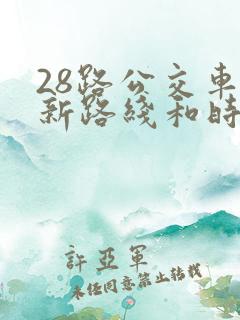 28路公交車
新路綫和時
許亞軍
未經同意禁止轉載